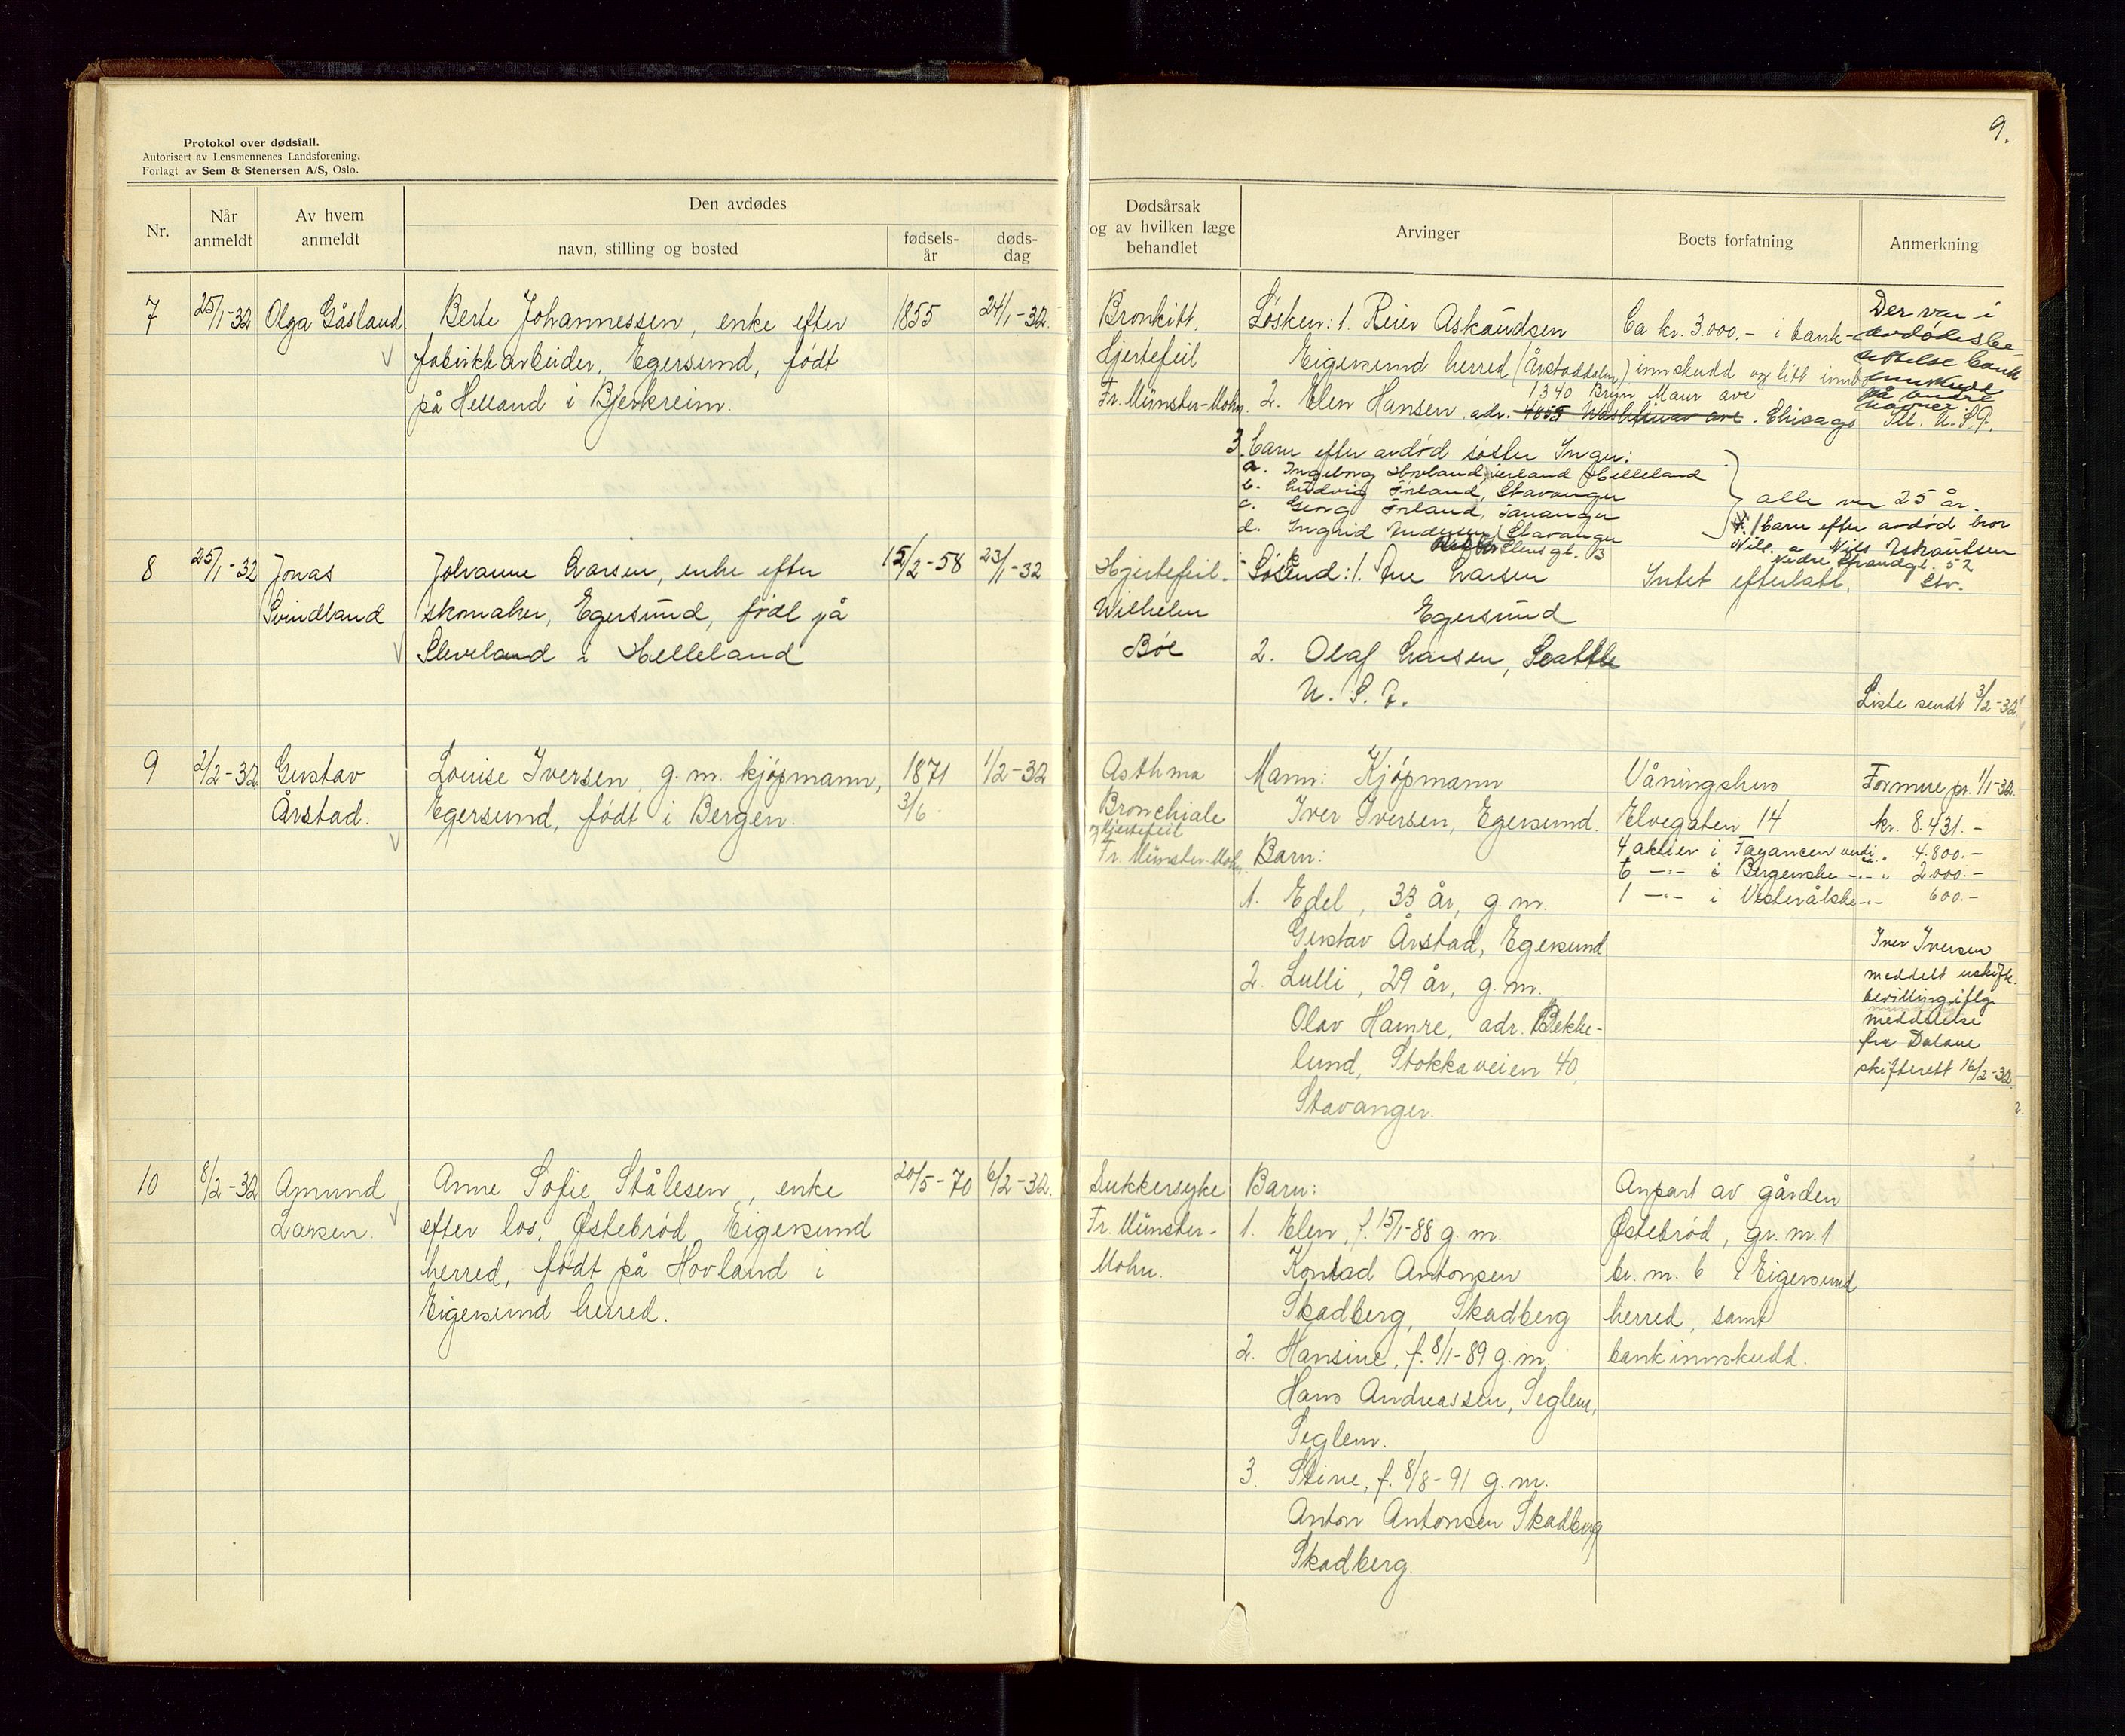 9.
Protokol over dødsfall.
Autorisert av Lensmennenes Landsforening.
Forlagt av Sem & Stenersen A/S, Oslo.
Nr.
Når anmeldt
Av hvem anmeldt
Den avdødes
navn, stilling og bosted
fødsels-år
døds-dag
Dødsårsak og av hvilken læge behandlet
Arvinger
Boets forfatning
Anmerkning
7
25/1-32
Olga Gåsland
Berte Johannessen, enke efter
fabrikkarbeider, Egersund, født
på Helland i Bjerkreim.
1855
24/1-32.
Bronkitt.
Hjertefeil
Fr. Münster-Mohn.
Søsken: 1. Reier Askaudsen
Eigersund herred (Årstaddalen)
2. Elen Hansen, adr. 4855 ave. Chicago Ill. U.S.A.
1340 Bryn Maur ave
3. barn efter avdød søster Inger:
a. Ingeborg Hovland, Helleland
b. Ludvig Förland, Stavanger
c. Georg Förland, Tananger
d. Ingrid Andersen, Stavanger
gt. 13
alle over 25 år.
4. 1 barn efter avdød bror
Nils. a. Nils
Nedre Strandgt. 52
Stv.
Ca kr. 3.000.- i bank-
innskudd og litt innbo
Der var i
avdødes be
sittelse bank
innskudd
på andre
navner
8
25/1-32
Jonas
Svindland
Johanne Larsen, enke efter
skomaker, Egersund, født på
Sleveland i Helleland
15/2-58
23/1-32
Hjertefeil.
Wilhelm
Böe
Søskend: 1. Ane Larsen
Egersund
2. Olaf Larsen, Seattle
U. S. A.
Intet efterlatt.
Liste sendt 3/2-32
9
2/2-32
Gustav
Årstad.
Louise Iversen, g. m. kjøpmann,
Egersund, født i Bergen.
1871
3/6
1/2-32
Asthma
Bronchiale
og Hjertefeil
Fr. Münster-Mohn.
Mann: Kjøpmann
Iver Iversen, Egersund.
Barn:
1. Edel, 33 år, g. m.
Gustav Årstad, Egersund
2. Lulli, 29 år, g. m.
Olav Hamre, adr. Bekke-
lund, Stokkaveien 40,
Stavanger.
Våningshus
Elvegaten 14
4 aktier i Fayancen verdi ca. " 4.800.-
6 -"- i Bergenske -"- " 2.000.-
1 -"- i Vestenfjelske -"- 600.-
Formue pr. 1/1-32.
kr. 8.431.-
Iver Iversen
meddelt uskifte-
bevilling iflg.
meddelelse
fra Dalane
skifterett 16/2-32.
10
8/2-32
Amund
Larsen.
Anne Sofie Stålesen, enke
efter los, Østebrød, Eigersund
herred, født på Hovland i
Eigersund herred.
20/5-70
6/2-32.
Sukkersyke
Fr. Münster-
Mohn.
Barn:
1. Elen, f. 15/1-88 g. m.
Konrad Antonsen
Skadberg, Skadberg
2. Hansine, f. 8/1-89 g. m.
Hans Andreassen, Seglem,
Seglem.
3. Stine, f. 8/8-91 g. m.
Anton Antonsen Skadberg
Skadberg.
Anpart av gården
Østebrød, gr. nr. 1
br. nr. 6 i Eigersund
herred, samt
bankinnskudd.